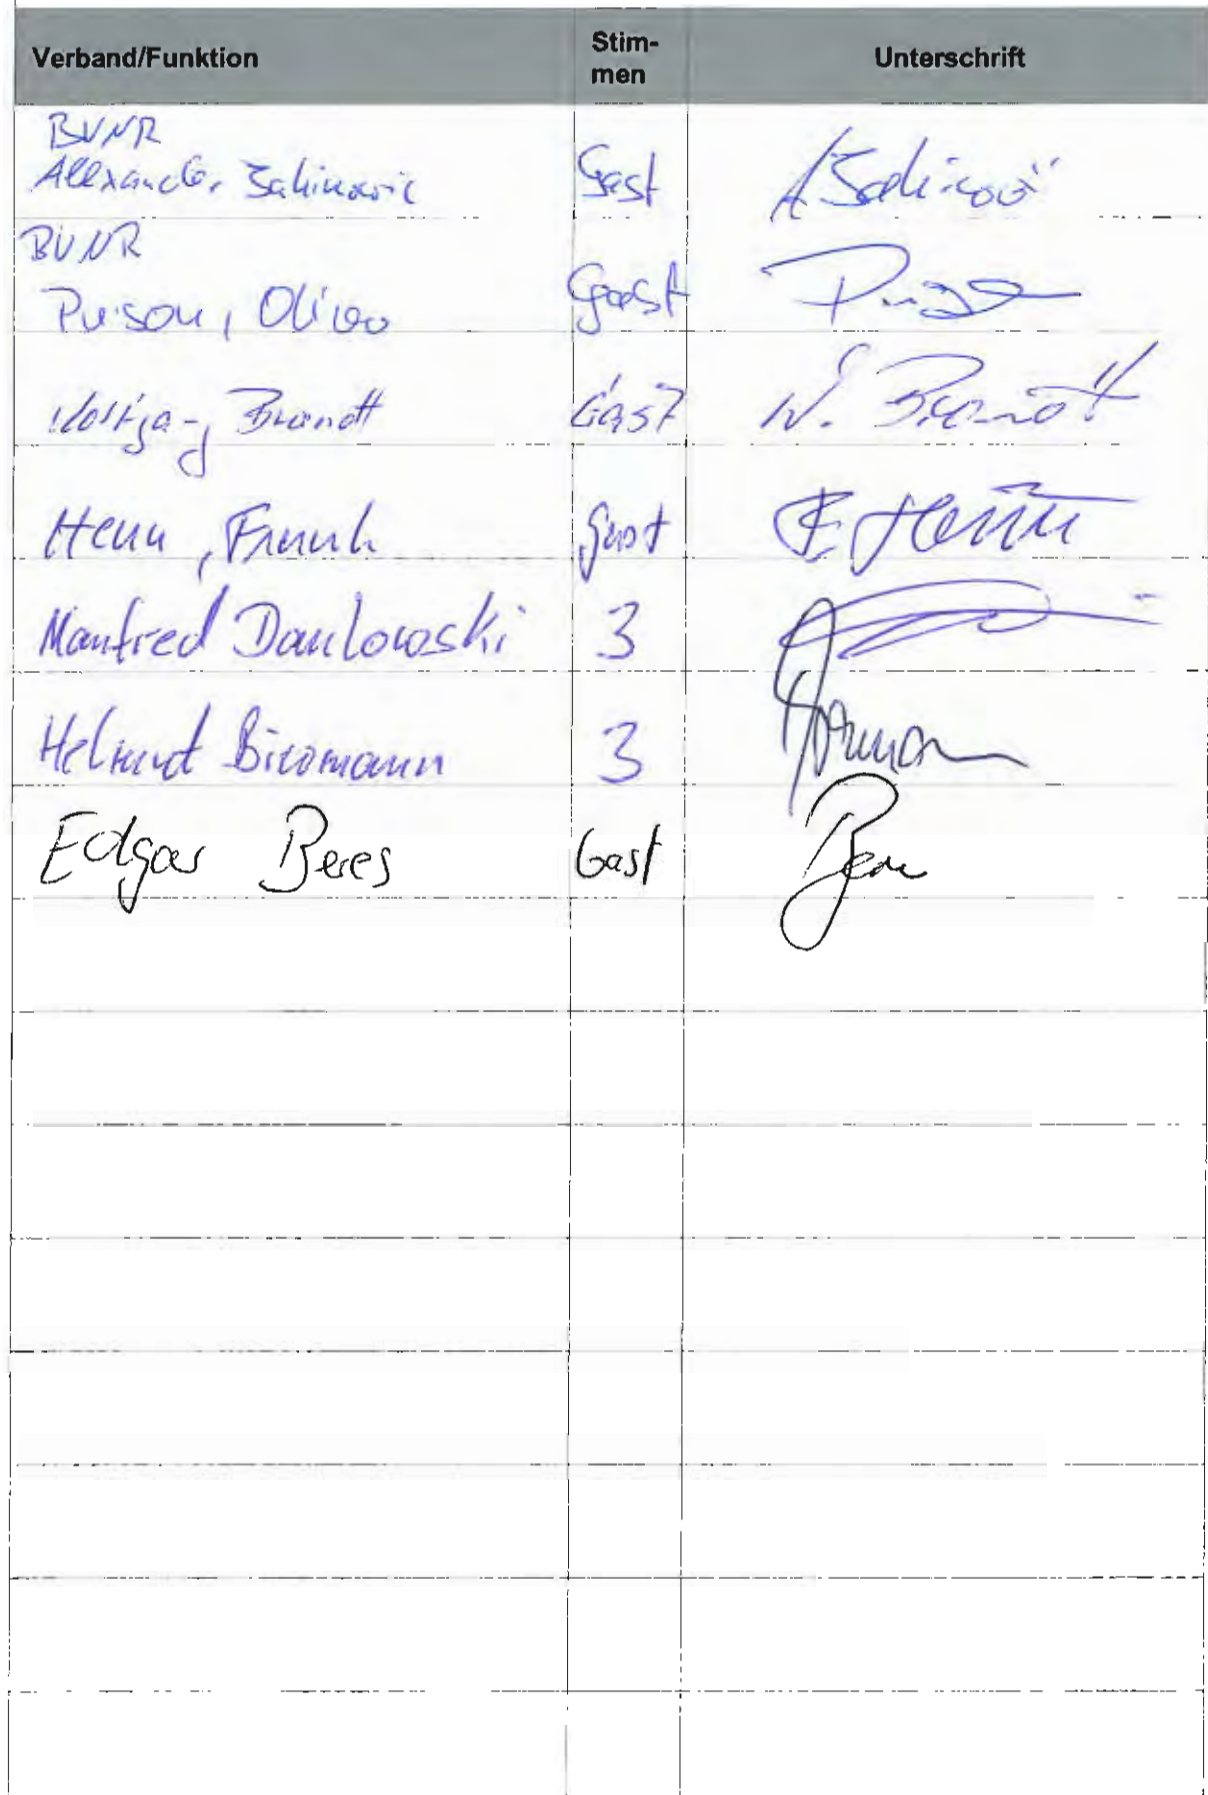 Verband/Funktion Stim-men Unterschrift
BVNR
Alexander Salinovic Gast
BVNR
Prison, Oliver Gast
Wolfgang Brandt Gast W. Brandt
Henn, Frank Gast F. Henn
Manfred Danlowski 3
Helmut Biermann 3
Edgar Beres Gast